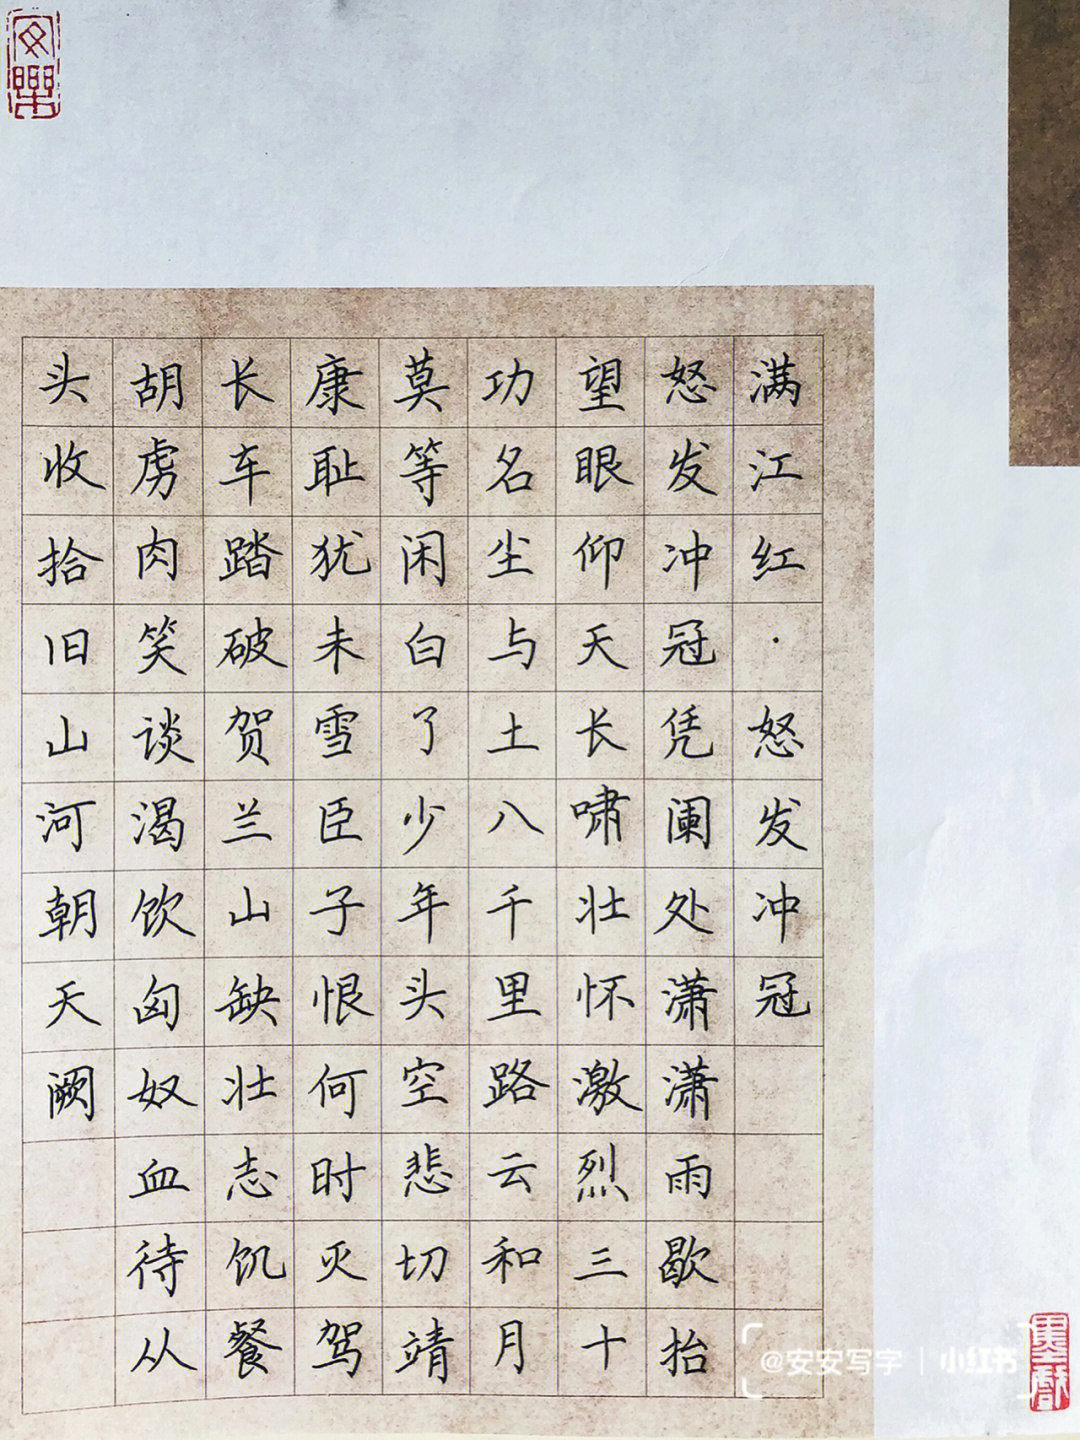 满江红·怒发冲冠
怒发冲冠凭阑处潇潇雨歇抬
望眼仰天长啸壮怀激烈三十
功名尘与土八千里路云和月
莫等闲白了少年头空悲切靖
康耻犹未雪臣子恨何时灭驾
长车踏破贺兰山缺壮志饥餐
胡虏肉笑谈渴饮匈奴血待从
头收拾旧山河朝天阙
@安安写字 | 小红书